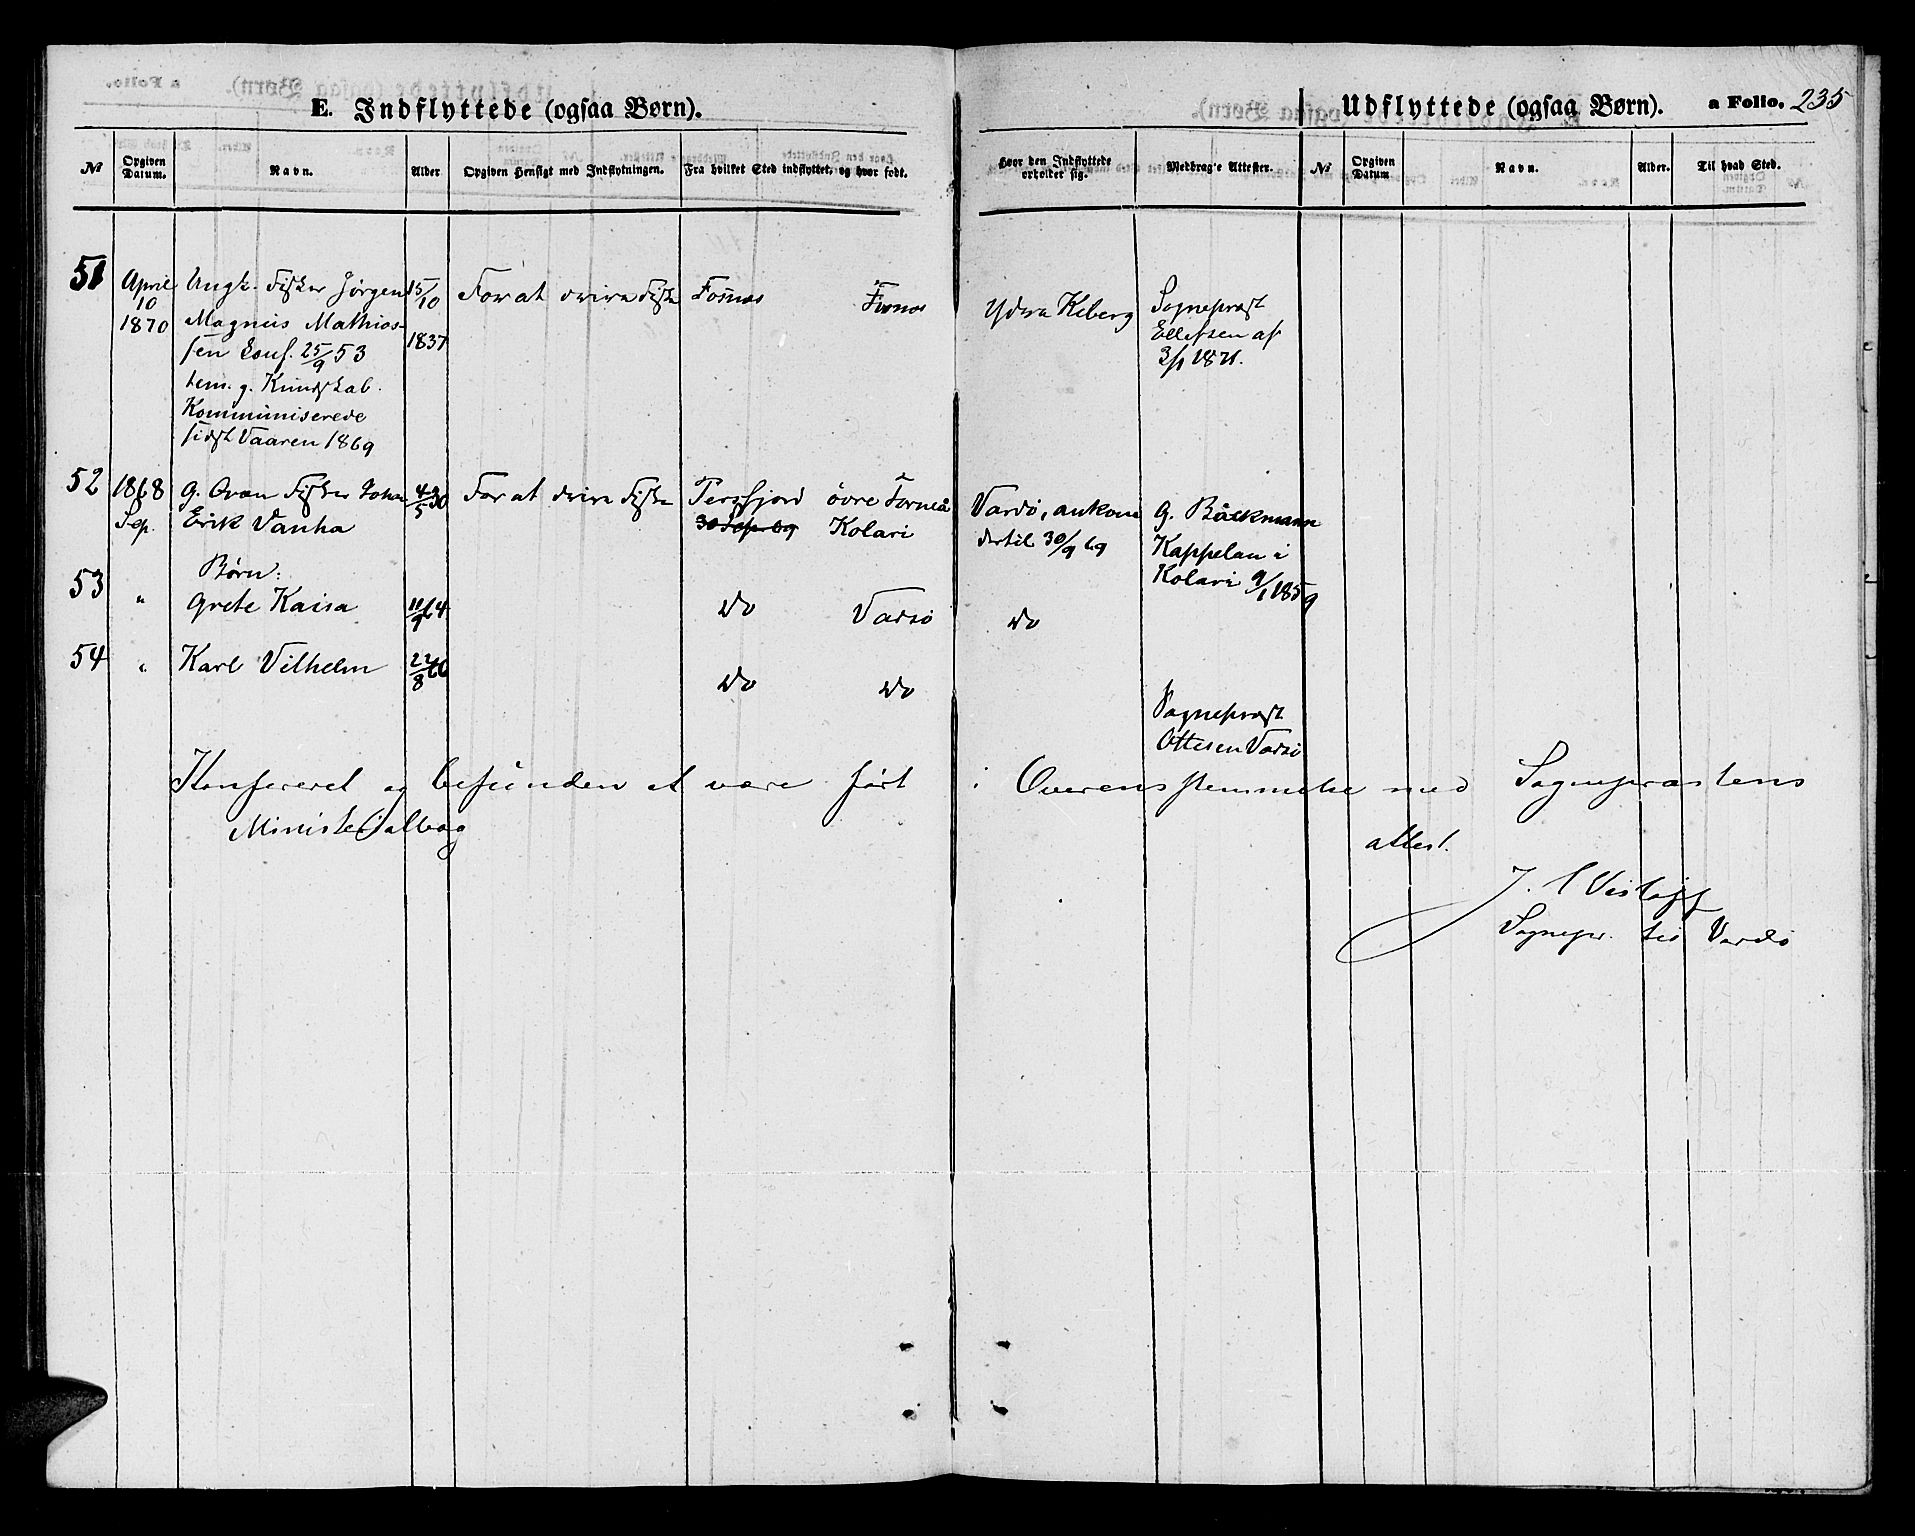 E. Indflyttede (ogsaa Børn).
Udflyttede (ogsaa Børn). a Folio. 235
No Opgiven Datum. Navn. Alder Opgiven Hensigt med Indflytningen. Fra hvilket Sted indflyttet, og hvor født.
Hvor den Indflyttede opholder sig. Medbragte Attester. No Opgiven Datum Navn. Alder. Til hvad Sted.
51 April 10 1870
Ungk. Fisker Jørgen
Magnus Mathias-
sen Conf. 25/9 53
tem. g. Kundskab.
Kommuniserede
sidst Vaaren 1869
15/10 1837
For at drive Fiske
Fosnæs
Fosnæs
Ydre Kiberg
Sognepræst
Ellefsen af
3/1 1871.
52 1868 Sep.
g. Qvæn Fisker Johan
Erik Vanha
4/5 30
For at drive Fiske
Persfjord
30 Sep 69
övre Torneå
Kolari
Vardö, ankom
dertil 30/9 69
G. Bäckmann
Kappelan i
Kolari 9/1 1859
Børn:
53 " Grete Kaisa 11/9 64 do Vadsö do
54 " Karl Vilhelm 22/8 66 do do
Sognepræst
Ottesen Vadsö
Konfereret og befunden at være ført i Overensstemmelse med Sognepræstens
Ministerialbog
attest.
J. Vislöff
Sognepr. til Vardö